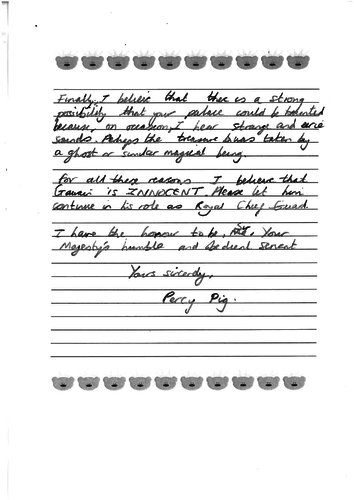 Finally, I believe that there is a strong
possibility that your palace could be haunted
because, on occasion, I hear strange and eerie
sounds. Perhaps the treasure was taken by
a ghost or similar magical being.
For all these reasons I believe that
Gawain is INNOCENT. Please let him
continue in his role as Royal Chief Guard.
I have the honour to be, Sir, Your
Majesty's humble and obedient servant
Yours sincerely,
Percy Pig.